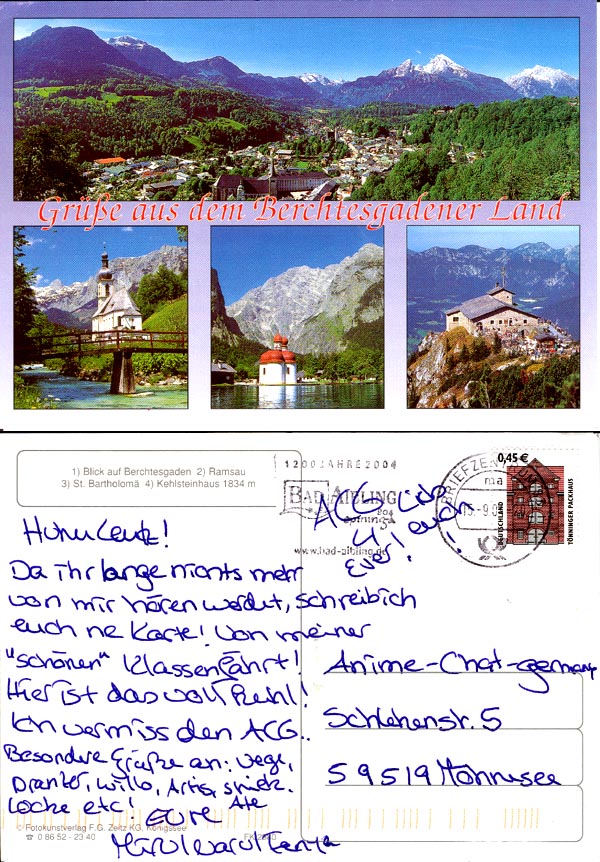 Grüße aus dem Berchtesgadener Land
1) Blick auf Berchtesgaden 2) Ramsau
3) St. Bartholomä 4) Kehlsteinhaus 1834 m
1200 JAHRE 2004
BAD AIBLING
www.bad-aibling.de
BRIEFZENTRUM
0,45 €
DEUTSCHLAND
TÖNNINGER PACKHAUS
ACG
euch
Euer!
Huhu Leutz!
Da ihr lange nichts mehr
von mir hören werdet, schreib ich
euch ne Karte! Von meiner
"schönen" Klassenfahrt!
Hier ist das voll
Ich vermiss den ACG..
Besondere Grüße an: Vege,
Locke etc! Eure
Anime-Chat-germany
Schlehenstr. 5
59519 Möhnesee
© Fotokunstverlag F.G. Zeitz KG, Königssee
☎ 0 86 52 - 23 40